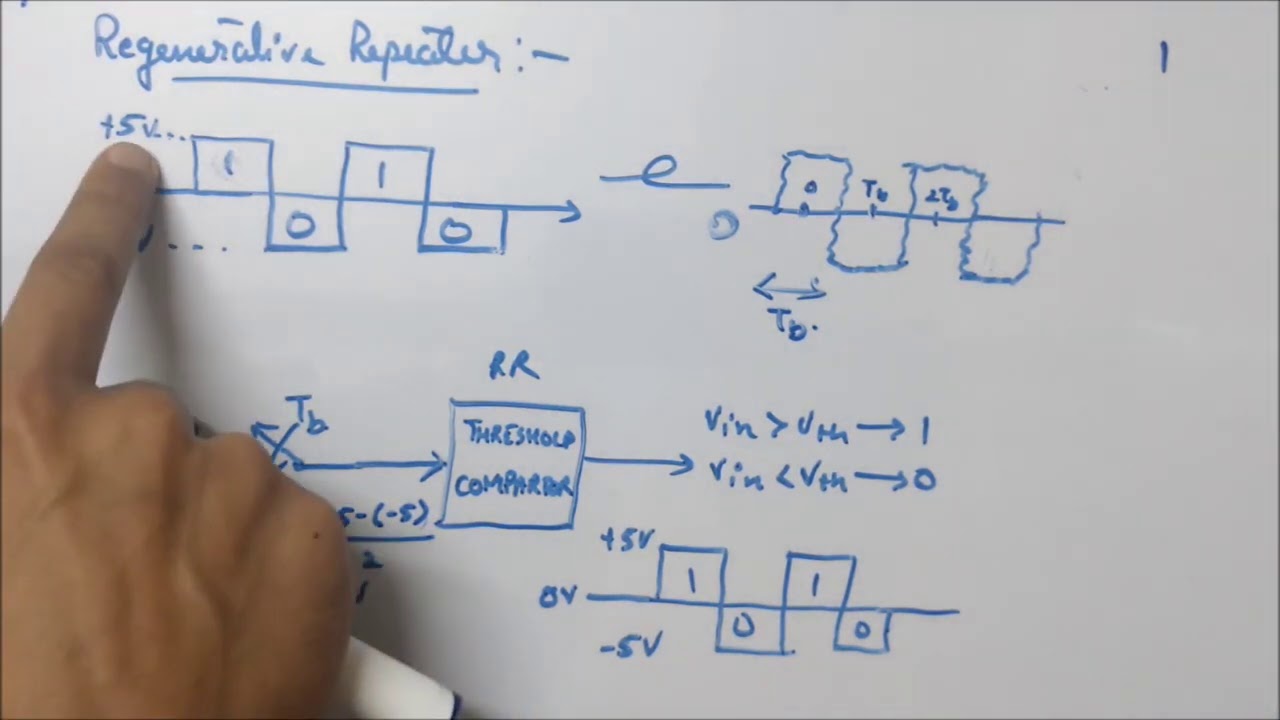 Regenerative Repeater :-
1
+5V...
1 1
0 0
0 Tb 2Tb
0
Tb.
RR
Tb
THRESHOLD
COMPARTOR
Vin > Vth → 1
Vin < Vth → 0
5-(-5)
2
+5V
1 1
0V
0 0
-5V